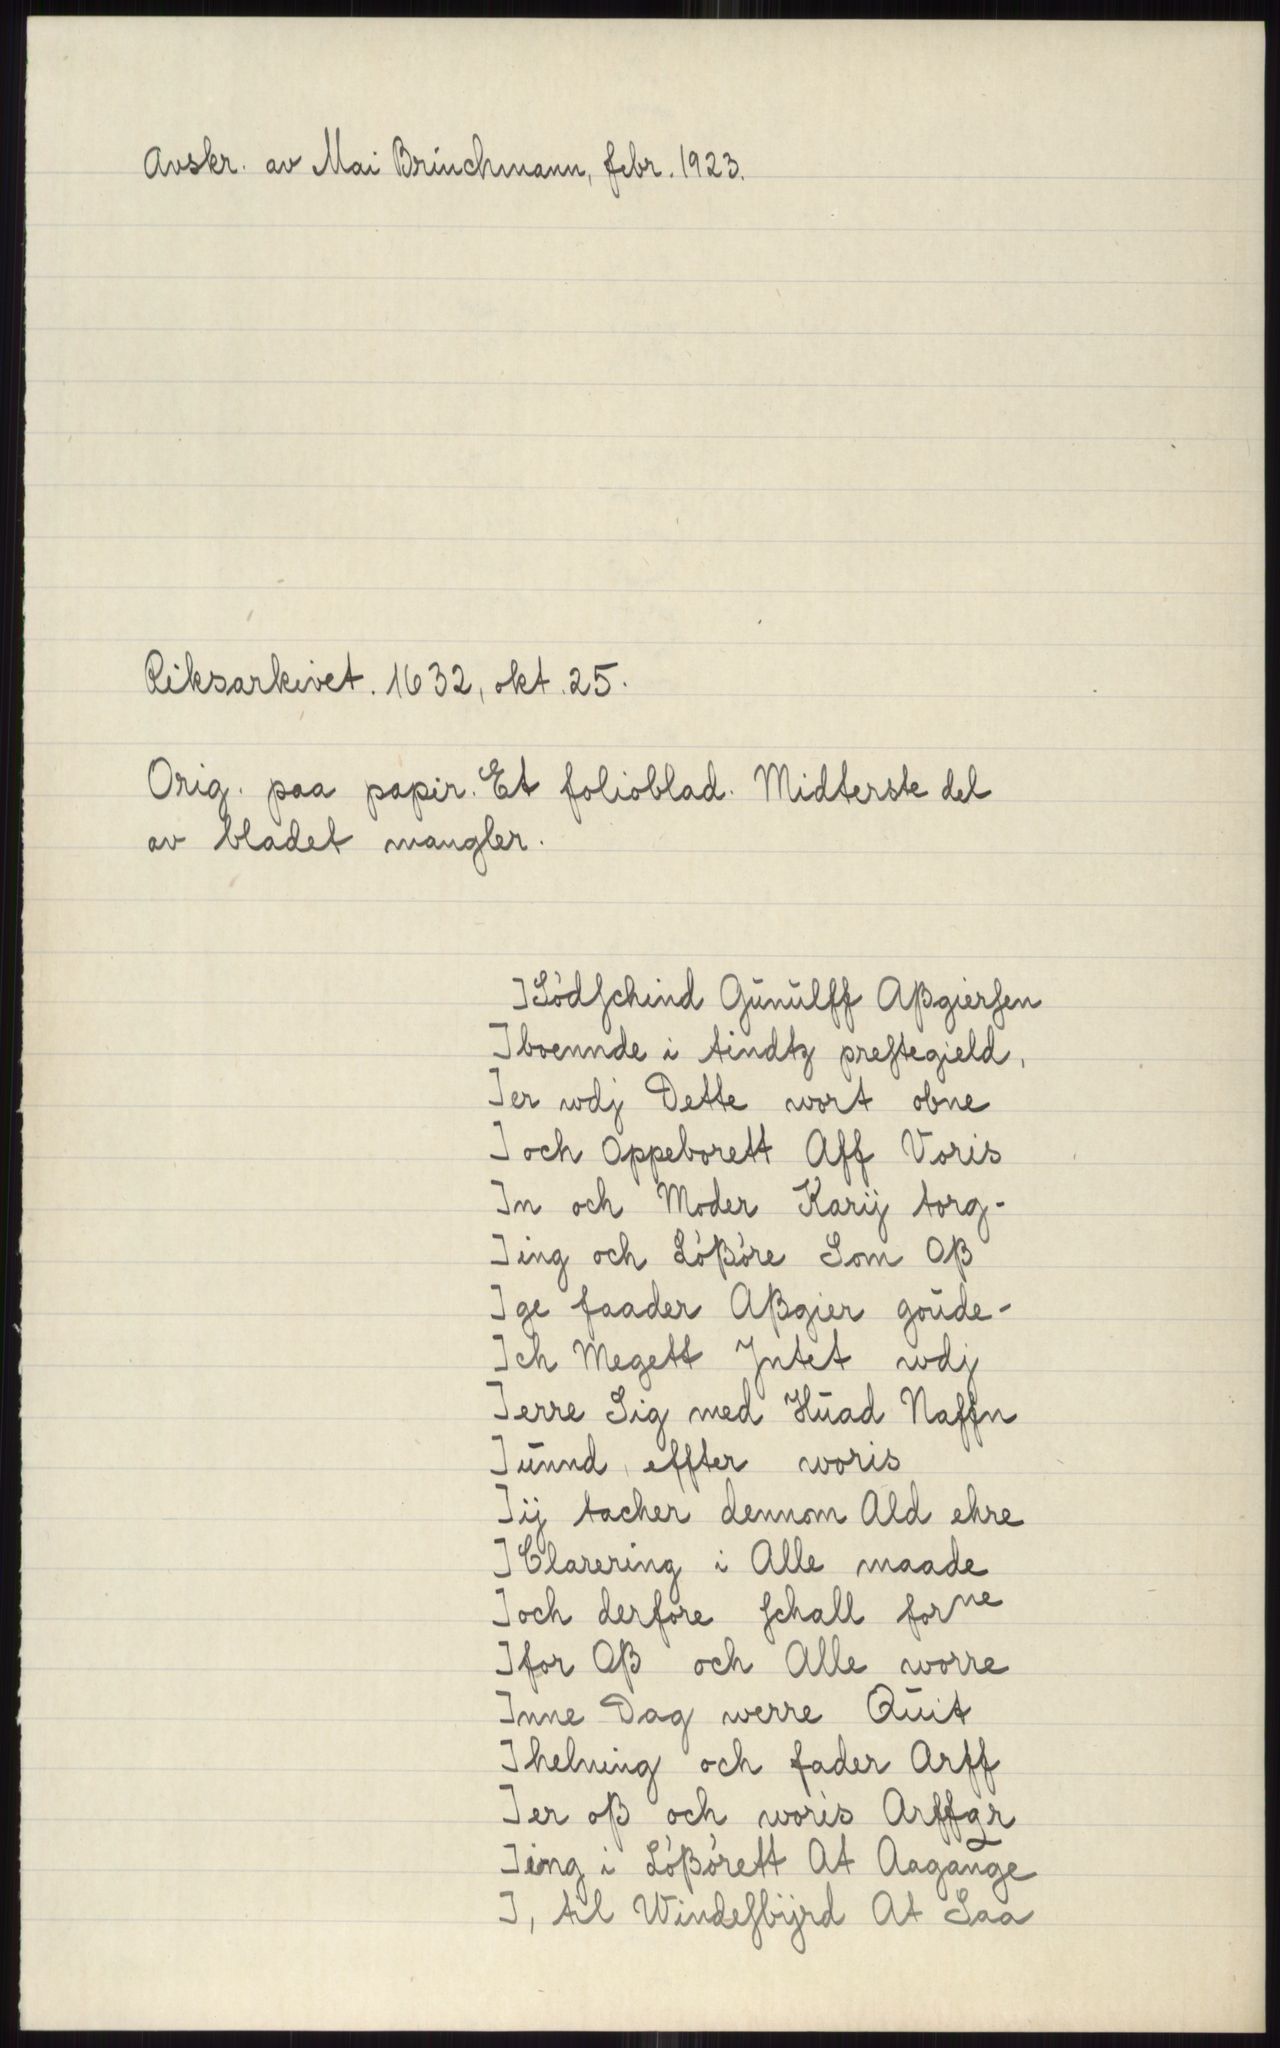 Avskr. av Mai Brinchmann, febr. 1923.
Riksarkivet. 1632, okt. 25.
Orig. paa papir. Et folioblad. Midterste del
av bladet mangler.
]Södſchind Gŭnŭlff Aßgierſen
]boennde i tindtz preſtegield,
]er wdj Dette wort obne
]och oppeborett Aff Voris
]n och Moder Karij torg-
]ing och Lößöre Som oß
]ge faader Aßgier goŭde-
]ch Megett Jntet wdj
]erre Sig med Hŭad Naffn
]ŭnnd effter woris
]ij tacher dennom Ald ehre
]Clarering i Alle maade
]och derfore ſchall forne
]for Oß och Alle worre
]nne Dag werre Qŭit
]helning och fader Arff
]er oß och woris Arffgr
]ing i Lößörett At Aagange
], til Windeſbijrd At Saa